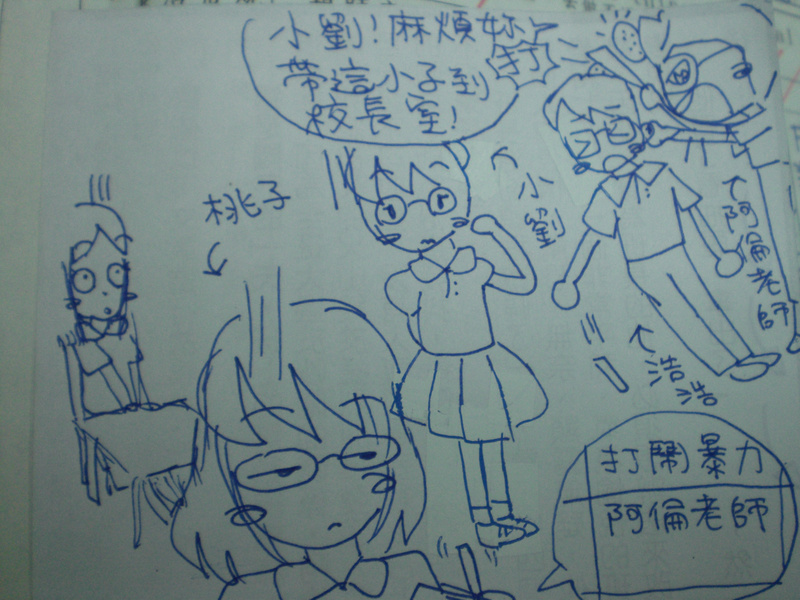 小劉!麻煩妳
帶這小子到
校長室!
打
桃子
小劉
阿倫老師
浩浩
打鬧暴力
阿倫老師